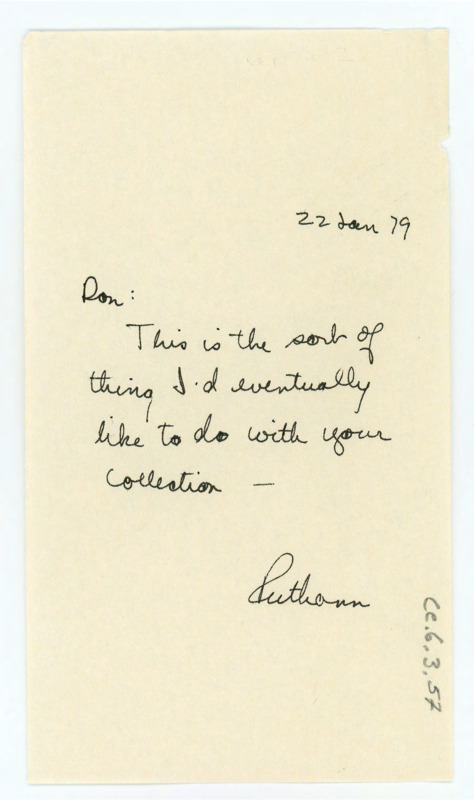 22 Jan 79
Ron:
This is the sort of
thing I'd eventually
like to do with your
Collection —
Ruthann
Cc.6.3.57